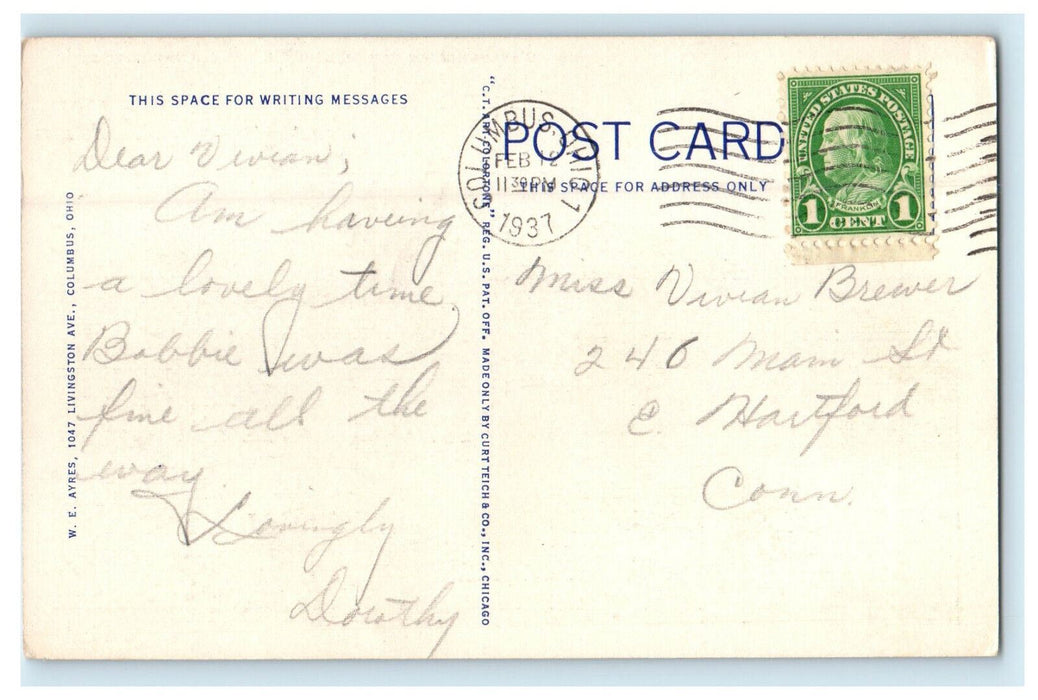 THIS SPACE FOR WRITING MESSAGES
Dear Vivian,
Am having
a lovely time.
Bobbie was
fine all the
way.
Lovingly
Dorothy
W. E. AYRES, 1047 LIVINGSTON AVE., COLUMBUS, OHIO
"C.T. ART-COLORTONE" REG. U.S. PAT. OFF. MADE ONLY BY CURT TEICH & CO., INC., CHICAGO
POST CARD
THIS SPACE FOR ADDRESS ONLY
COLUMBUS, OHIO 1
FEB 12
11 30 PM
1937
UNITED STATES POSTAGE
FRANKLIN
1 CENT 1
Miss Vivian Brewer
246 Main St
E. Hartford
Conn.